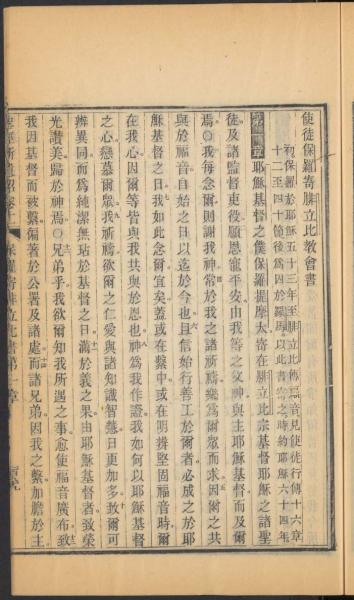 使徒保羅寄腓立比教會書
初保羅於耶穌五十三年至腓立比傳福音見使徒行傳十六章
十二至四十節後爲囚於羅馬以此書寄之時約耶穌六十四年
第一章耶穌基督之僕保羅提摩太寄在腓立比宗基督耶穌之諸聖
徒及諸監督吏役願恩寵平安由我等之父神與主耶穌基督而及爾
焉〇我每念爾則謝我神常於我之諸祈禱樂爲爾眾而求因爾之共
與於福音自始之日以迄於今也且信始行善工於爾者必成之於耶
穌基督之日我如此念爾宜矣蓋或在繫中或在明辨堅固福音時爾
在我心因爾等皆與我共與於恩也神爲我作證我如何以耶穌基督
之心戀慕爾眾我祈禱欲爾之仁愛與諸知識智慧日更加多致爾可
辨異同而爲純潔無玷於基督之日滿於義之果由耶穌基督者致榮
光讚美歸於神焉〇兄弟乎我欲爾知我所遇之事愈使福音廣布致
我因基督而被繫徧著於公署及諸處而諸兄弟因我之繫加膽於主
保羅寄腓立比書第一章